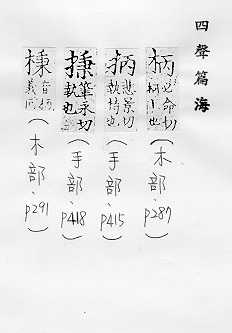 四聲篇海
柄 必命切 柯柄也（木部、p287）
抦 悲景切 執持也（手部、p415）
㨀 筆永切 執也（手部、p418）
棅 音柄 義同（木部、p291）